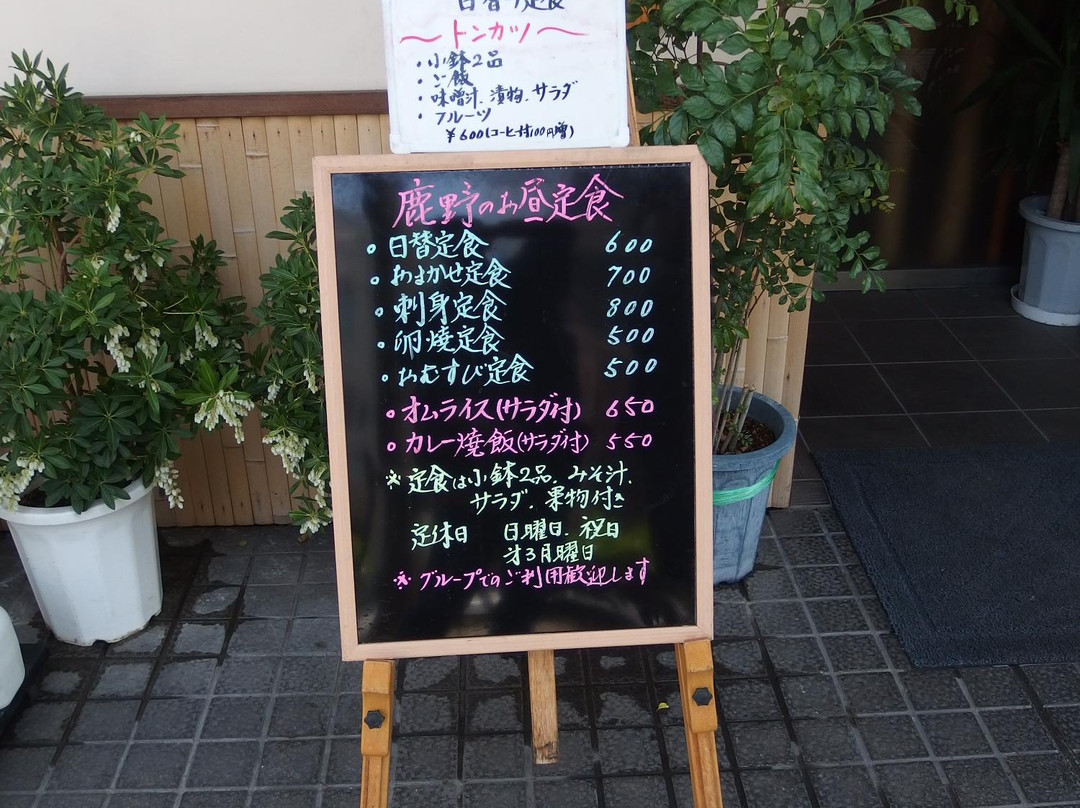 日替り定食
〜トンカツ〜
・小鉢2品
・ご飯
・味噌汁、漬物、サラダ
・フルーツ
¥600(コーヒー付100円増)
鹿野のお昼定食
○日替定食 600
○おまかせ定食 700
○刺身定食 800
○卵焼定食 500
○おむすび定食 500
○オムライス(サラダ付) 650
○カレー焼飯(サラダ付) 550
※定食は小鉢2品、みそ汁、
サラダ、果物付き
定休日 日曜日、祝日
才3月曜日
※グループでのご利用歓迎します